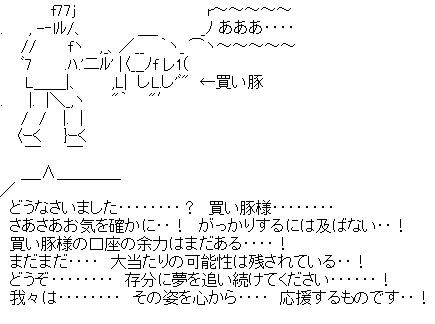 あああ････
←買い豚
どうなさいました････････？　買い豚様････････
さあさあお気を確かに･･！　がっかりするには及ばない･･！
買い豚様の口座の余力はまだある････！
まだまだ････　大当たりの可能性は残されている･･！
どうぞ････････　存分に夢を追い続けてください･･････！
我々は････････　その姿を心から････　応援するものです･･！